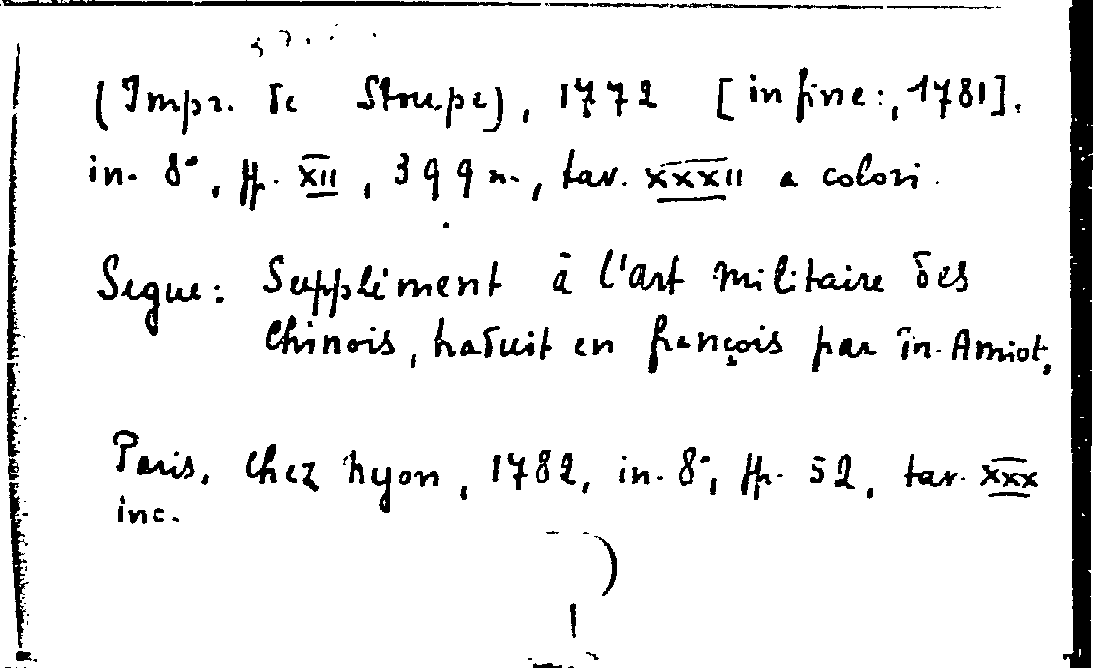 (Impr. de Stoupe), 1772 [in fine:, 1781].
in-8°, pp. XII, 399 n., tav. XXXII a colori.
Segue: Supplément à l'art militaire des
Chinois, traduit en françois par m. Amiot,
Paris, chez Nyon, 1782, in-8°, pp. 52, tav. XXX
inc.